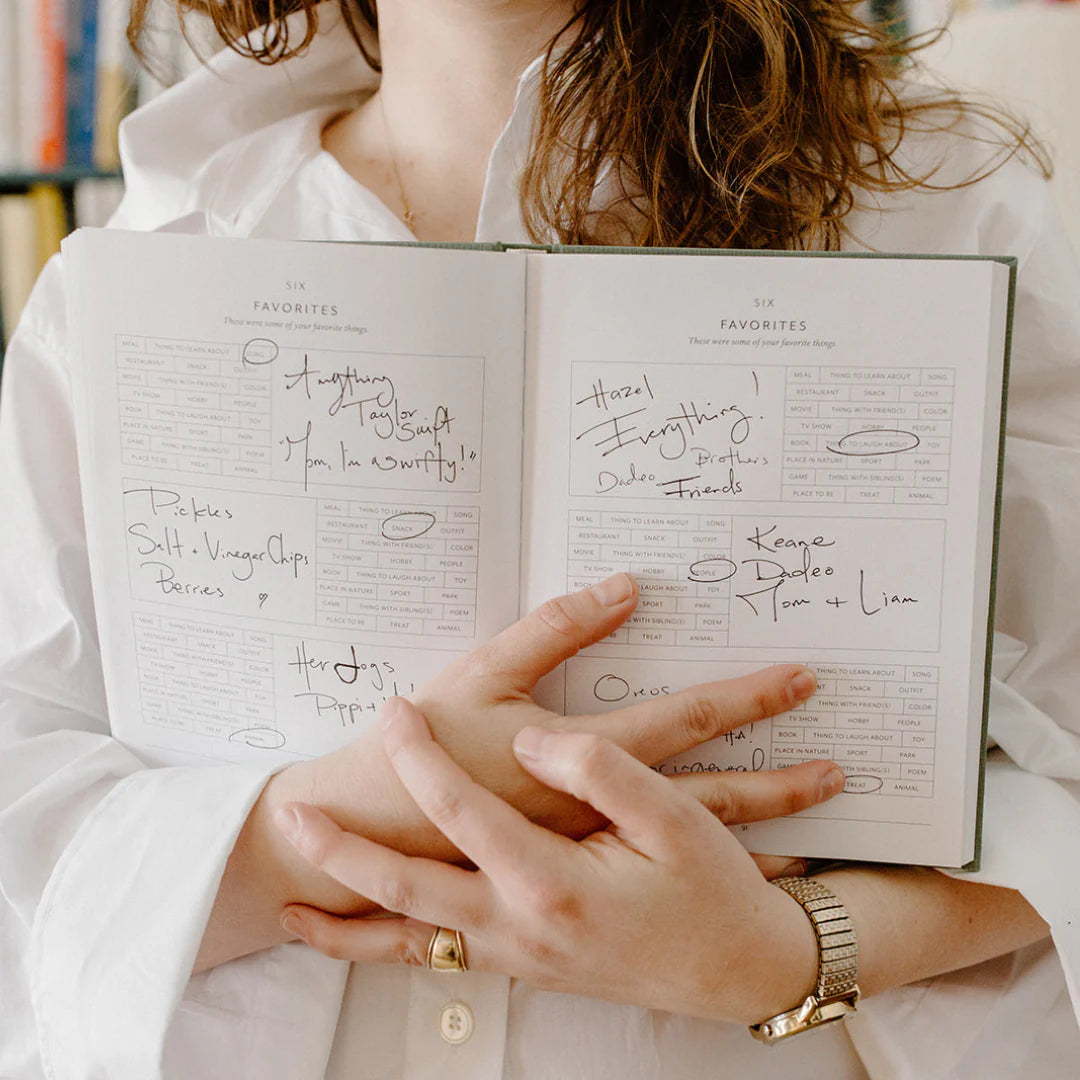 SIX
FAVORITES
These were some of your favorite things.
MEAL THING TO LEARN ABOUT SONG
RESTAURANT SNACK OUTFIT
MOVIE THING WITH FRIEND(S) COLOR
TV SHOW HOBBY PEOPLE
BOOK THING TO LAUGH ABOUT TOY
PLACE IN NATURE SPORT PARK
GAME THING WITH SIBLING(S) POEM
PLACE TO BE TREAT ANIMAL
Anything
Taylor
Swift
"Mom, I'm a swifty!"
Pickles
Salt + Vinegar Chips
Berries
MEAL THING TO LEARN ABOUT SONG
RESTAURANT SNACK OUTFIT
MOVIE THING WITH FRIEND(S) COLOR
TV SHOW HOBBY PEOPLE
BOOK THING TO LAUGH ABOUT TOY
PLACE IN NATURE SPORT PARK
GAME THING WITH SIBLING(S) POEM
PLACE TO BE TREAT ANIMAL
MEAL THING TO LEARN ABOUT SONG
RESTAURANT SNACK OUTFIT
MOVIE THING WITH FRIEND(S) COLOR
TV SHOW HOBBY PEOPLE
BOOK THING TO LAUGH ABOUT TOY
PLACE IN NATURE SPORT PARK
GAME THING WITH SIBLING(S) POEM
PLACE TO BE TREAT ANIMAL
Her dogs
Pippi +
SIX
FAVORITES
These were some of your favorite things.
Hazel
Everything!
Brothers
Dadeo
Friends
MEAL THING TO LEARN ABOUT SONG
RESTAURANT SNACK OUTFIT
MOVIE THING WITH FRIEND(S) COLOR
TV SHOW HOBBY PEOPLE
BOOK THING TO LAUGH ABOUT TOY
PLACE IN NATURE SPORT PARK
GAME THING WITH SIBLING(S) POEM
PLACE TO BE TREAT ANIMAL
MEAL THING TO LEARN ABOUT SONG
RESTAURANT SNACK OUTFIT
MOVIE THING WITH FRIEND(S) COLOR
TV SHOW HOBBY PEOPLE
BOOK LAUGH ABOUT TOY
SPORT PARK
SIBLING(S) POEM
TREAT ANIMAL
Keane
Dadeo
Mom + Liam
Oreos
HA!
in general
THING TO LEARN ABOUT SONG
SNACK OUTFIT
THING WITH FRIEND(S) COLOR
TV SHOW HOBBY PEOPLE
BOOK THING TO LAUGH ABOUT TOY
PLACE IN NATURE SPORT PARK
GAME SIBLING(S) POEM
TREAT ANIMAL
91